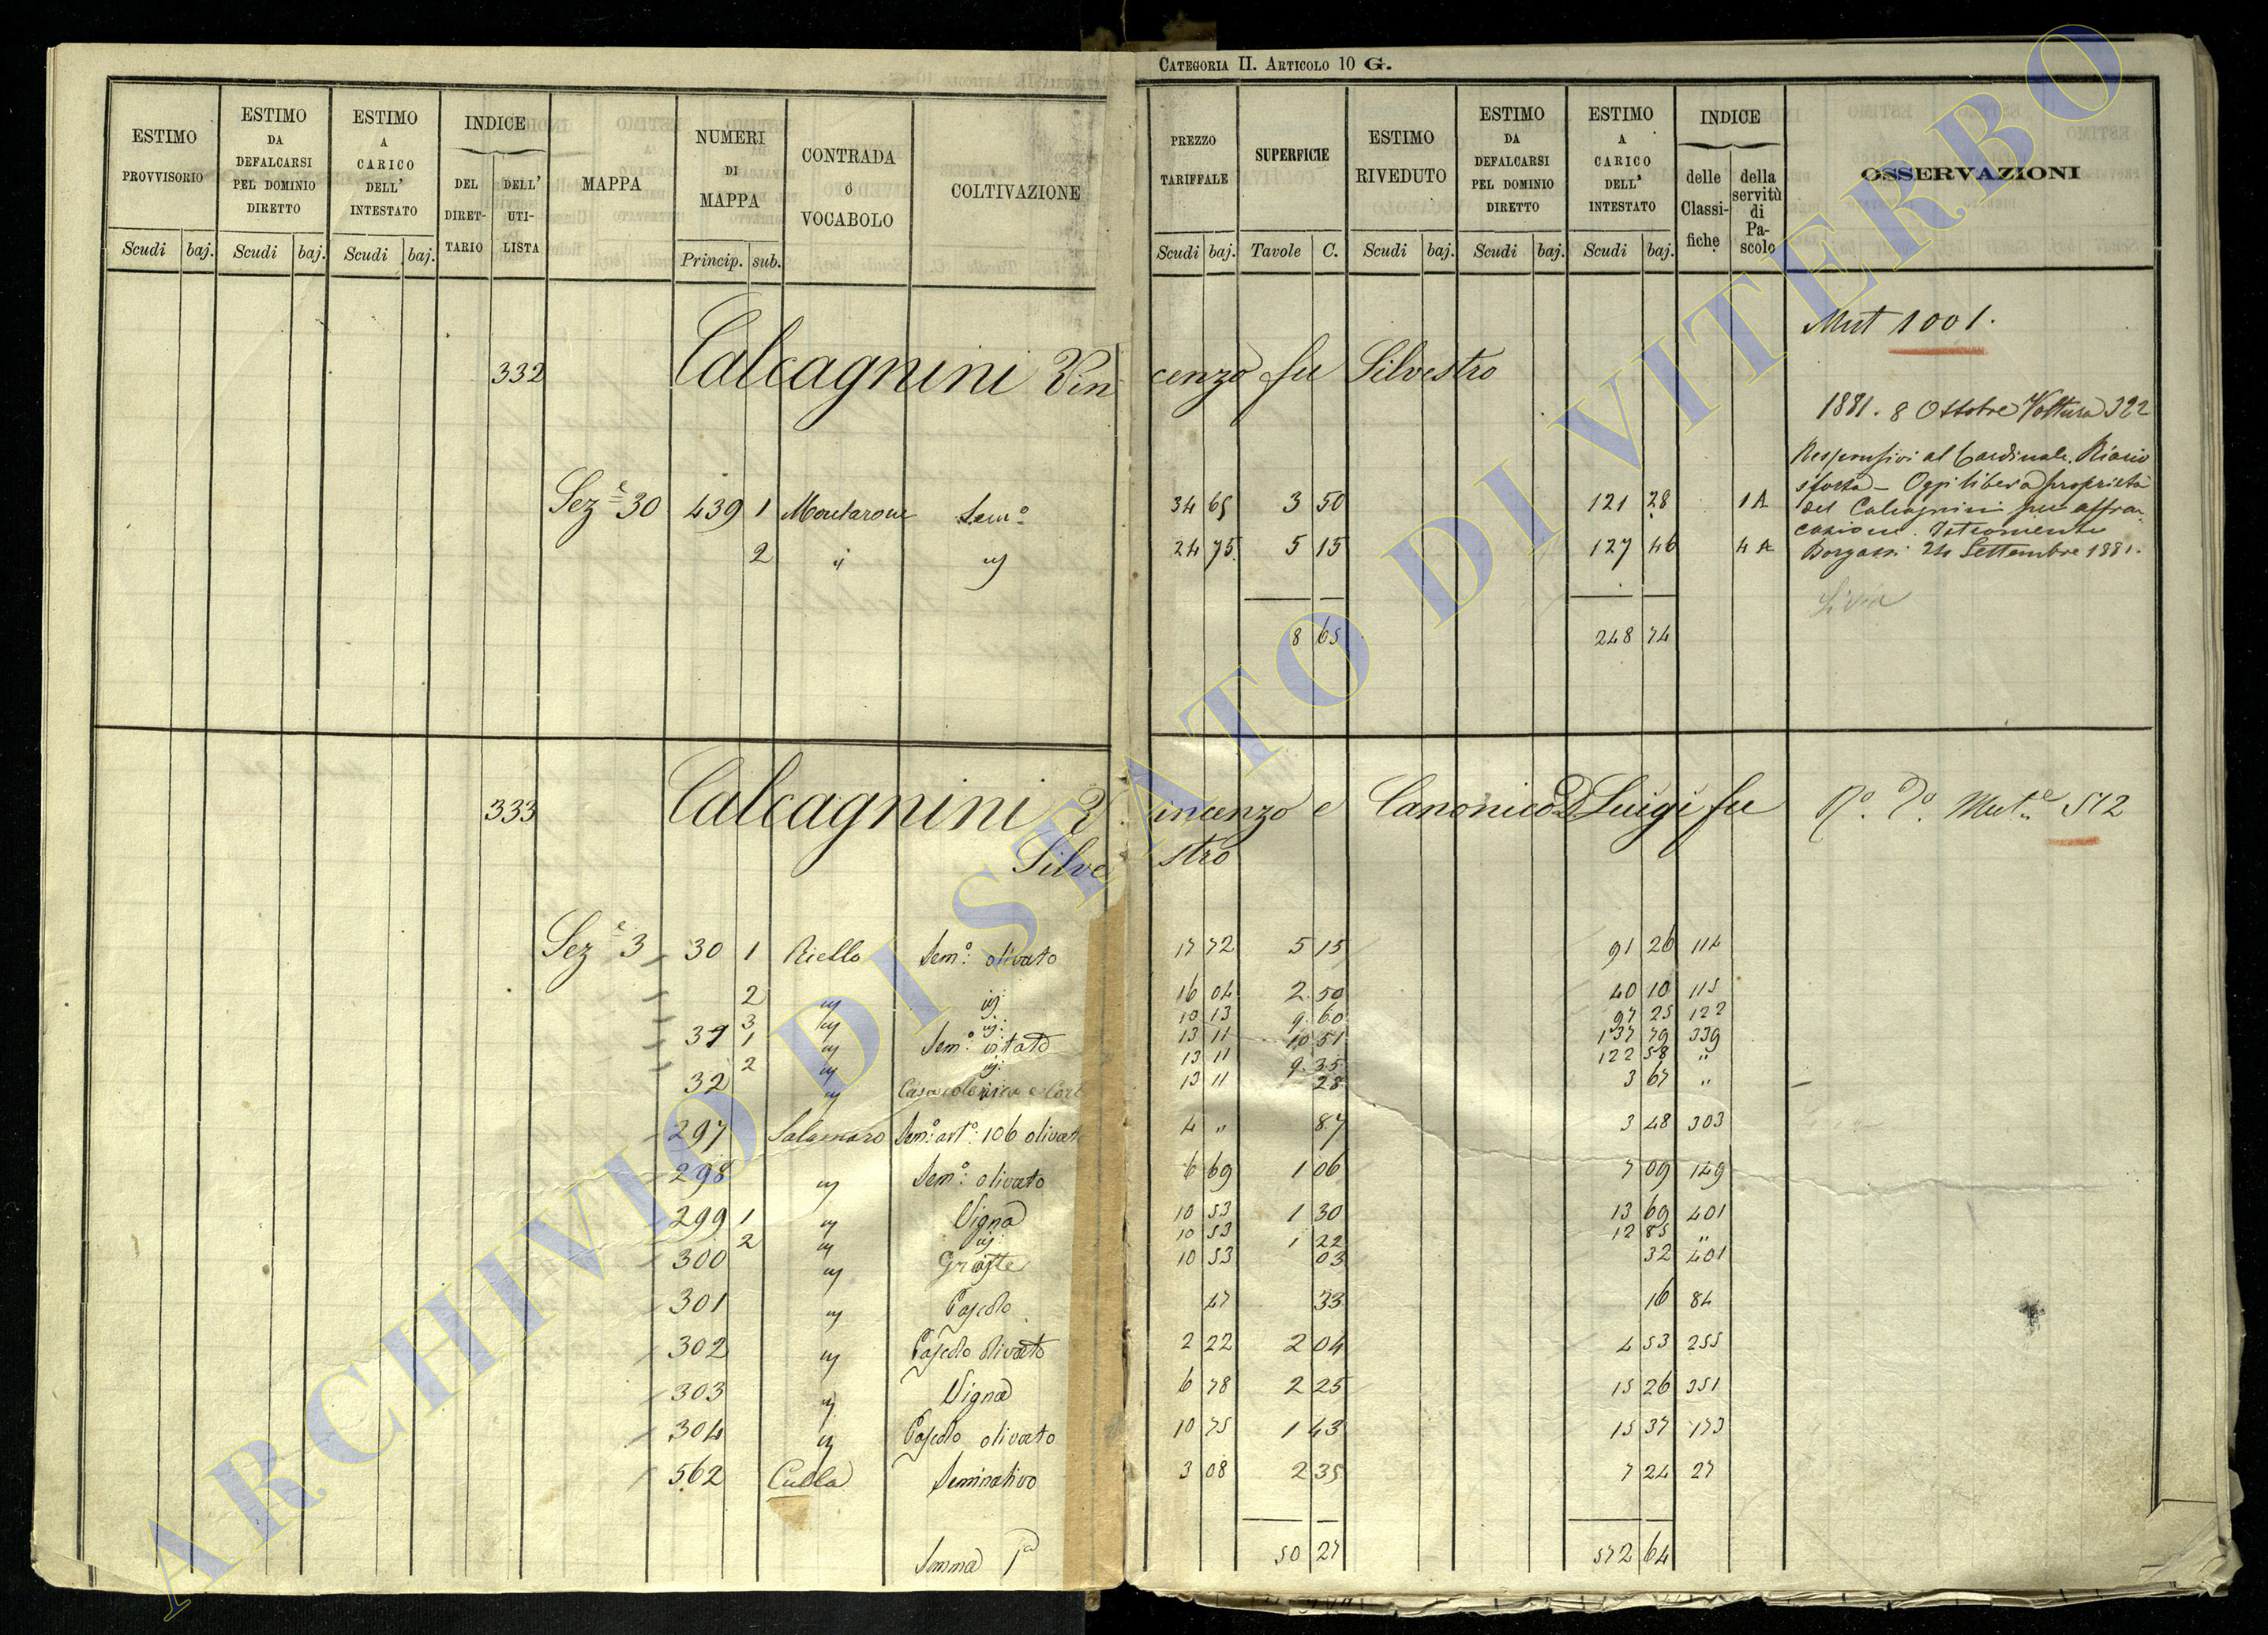 CATEGORIA II. ARTICOLO 10 G.
ESTIMO PROVVISORIO Scudi baj.
ESTIMO DA DEFALCARSI PEL DOMINIO DIRETTO Scudi baj.
ESTIMO A CARICO DELL' INTESTATO Scudi baj.
INDICE DEL DIRET-TARIO DELL' UTI-LISTA
MAPPA
NUMERI DI MAPPA Princip. sub.
CONTRADA o VOCABOLO
COLTIVAZIONE
PREZZO TARIFFALE Scudi baj.
SUPERFICIE Tavole C.
ESTIMO RIVEDUTO Scudi baj.
ESTIMO DA DEFALCARSI PEL DOMINIO DIRETTO Scudi baj.
ESTIMO A CARICO DELL' INTESTATO Scudi baj.
INDICE delle Classi-fiche della servitù di Pa-scolo
OSSERVAZIONI
Mut 1001.
332 Calcagnini Vincenzo fu Silvestro
1881. 8 Ottobre Voltura 322
Responsivi al Cardinale Riario
Sforza - Oggi libera proprietà
del Calcagnini per affran-
cazione. Istromento
24 Settembre 1881.
Seze 30 439 1 Montarone Semo 34 65 3 50 121 28 1 A
2 " " 24 75 5 15 127 46 4 A
8 65 248 74
333 Calcagnini Vincenzo e Canonico D Luigi fu
Silvestro
Mute 572
Seze 3 30 1 Riello Semo: olivato 17 72 5 15 91 26 114
2 " " 16 04 2 50 40 10 115
3 " " 10 13 9 60 97 25 122
31 1 " Semo: vitato 13 11 10 51 137 79 339
2 " " 13 11 9 35 122 58 "
32 " Casa colonica e Cort 13 11 28 3 67 "
297 Salamaro Semo: arto: 106 olivato 4 " 87 3 48 303
298 " Semo: olivato 6 69 1 06 7 09 149
299 1 " Vigna 10 53 1 30 13 69 401
2 " " 10 53 1 22 12 85 "
300 " Grotte 10 53 03 32 401
301 " Pascolo 47 33 16 84
302 " Pascolo olivato 2 22 2 04 4 53 255
303 " Vigna 6 78 2 25 15 26 351
304 " Pascolo olivato 10 75 1 43 15 37 173
562 Culla Seminativo 3 08 2 35 7 24 27
Somma Pa 50 27 572 64
ARCHIVIO DI STATO DI VITERBO